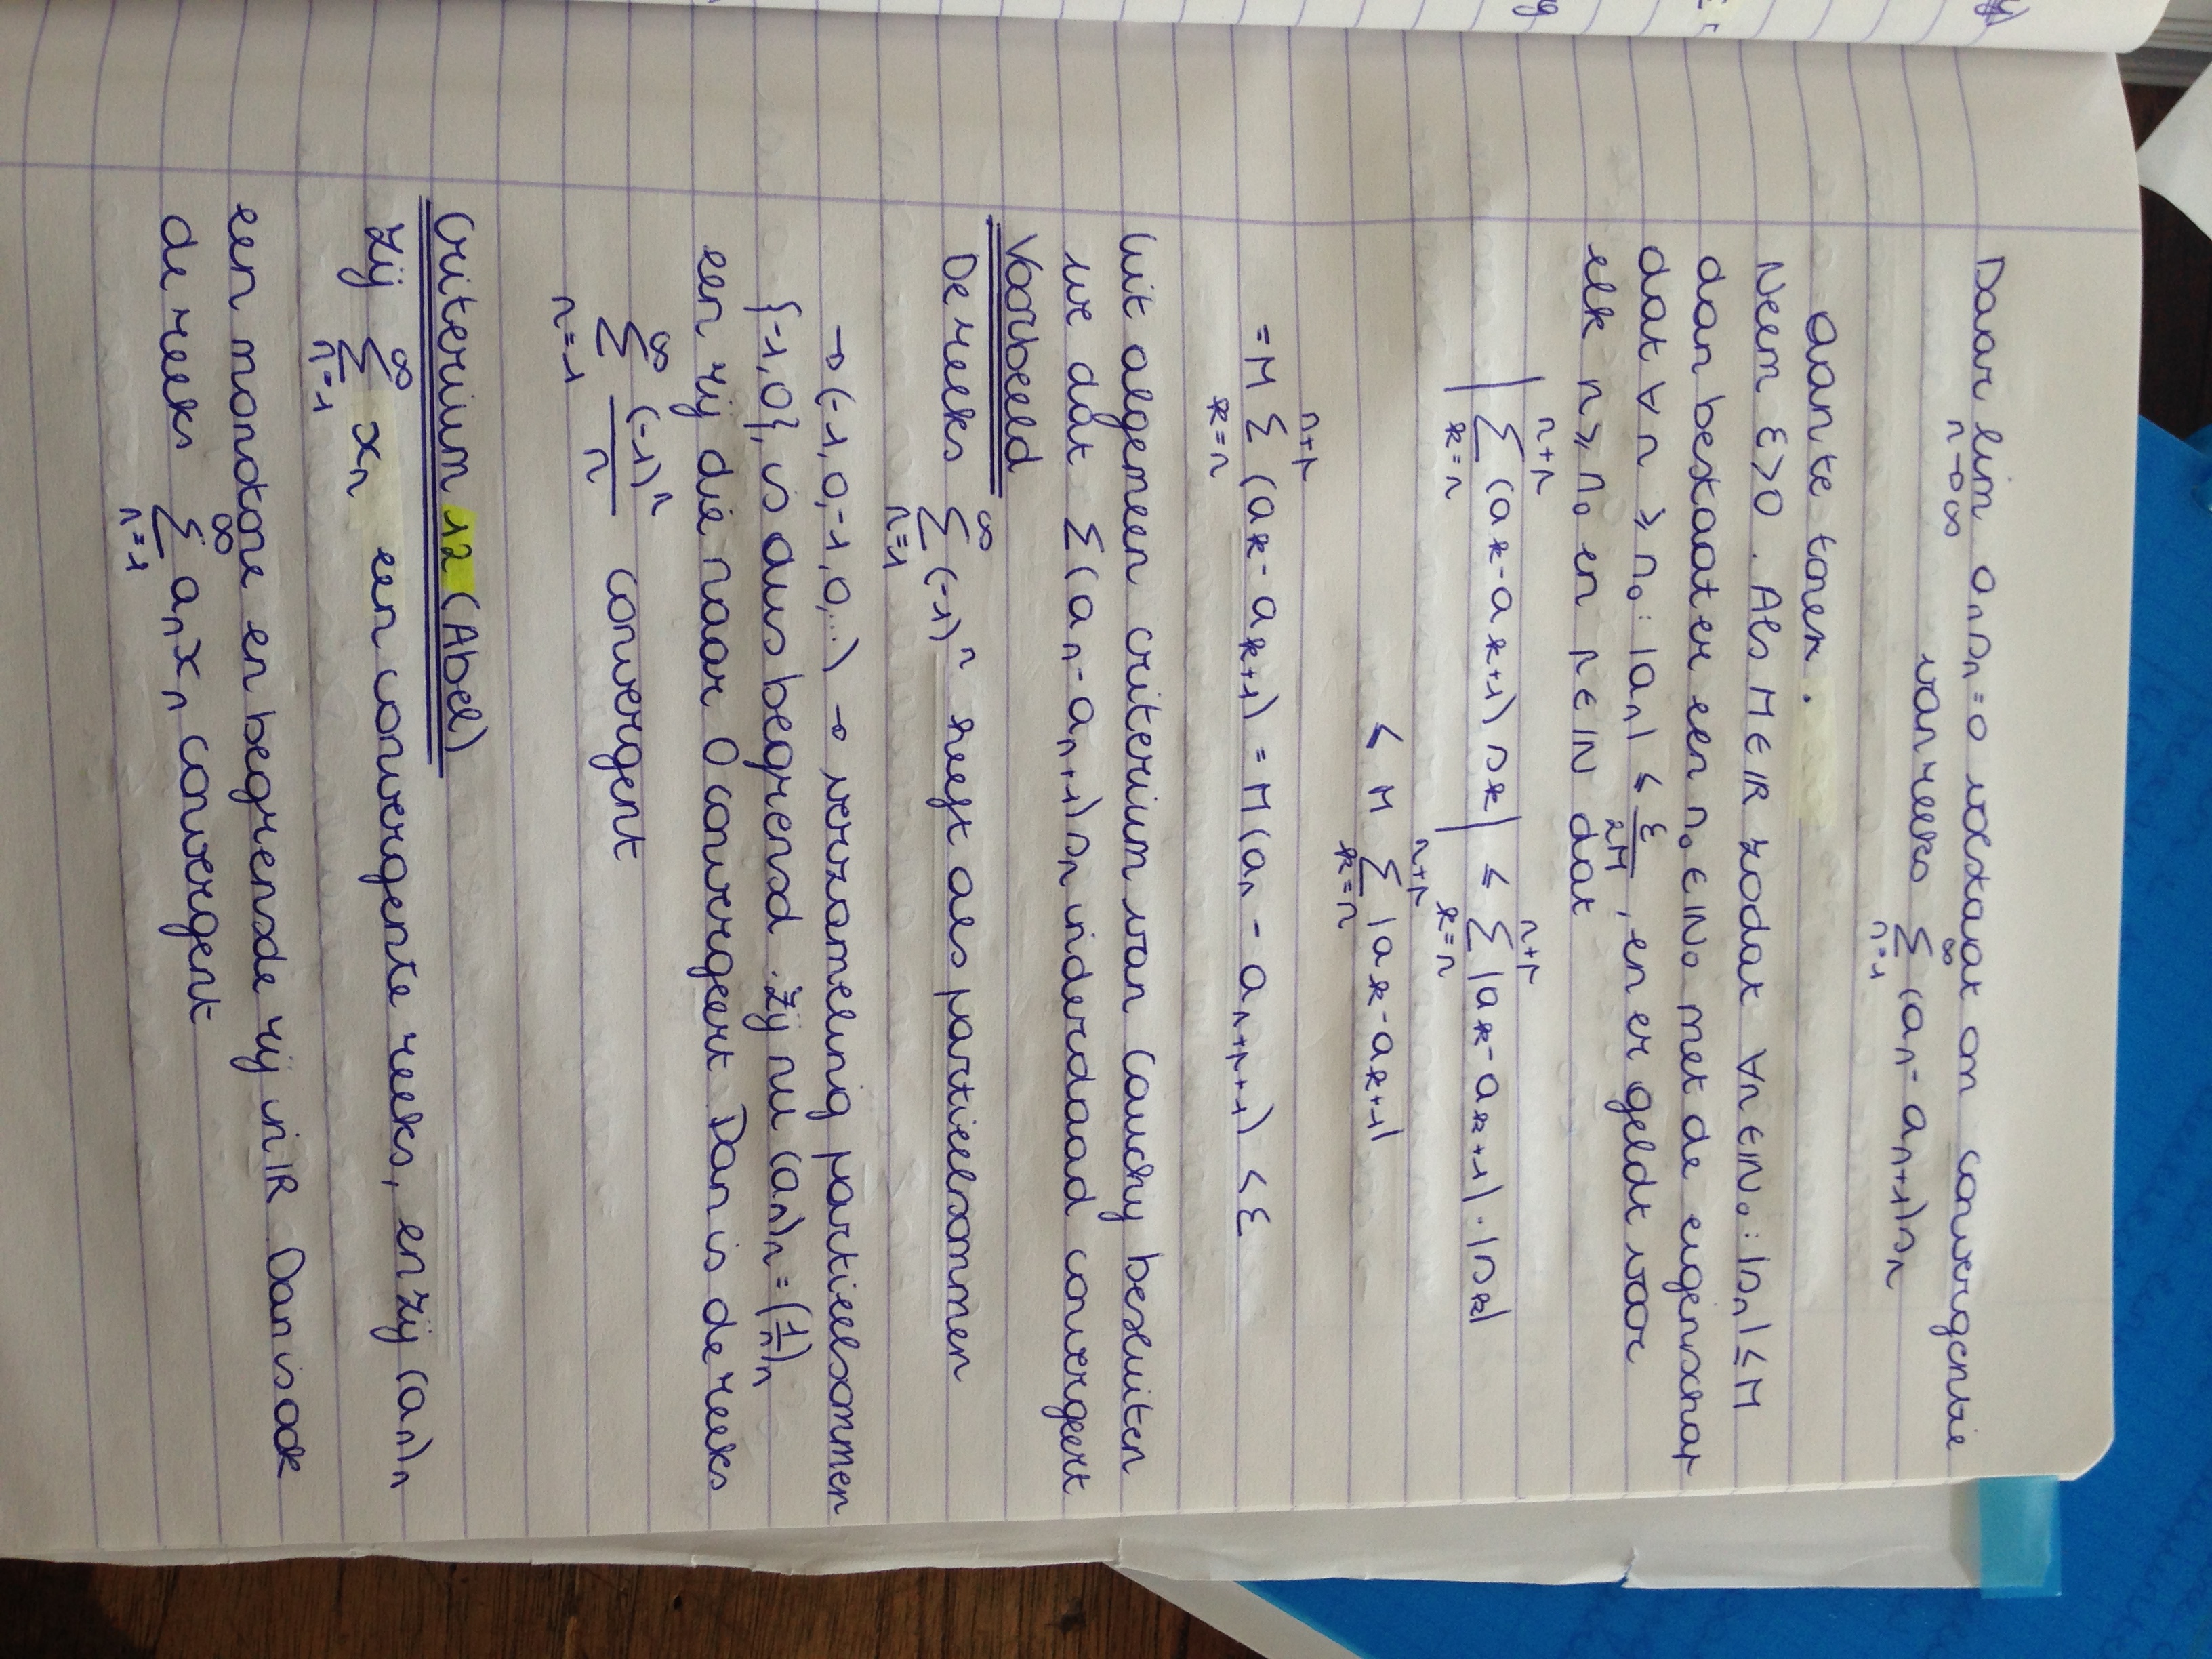 Daar lim aₙsₙ=0 volstaat om convergentie
n→∞
van reeks ∞∑n=1 (aₙ-aₙ₊₁)sₙ
aan te tonen.
Neem ε>0. Als M∈ℝ zodat ∀n∈ℕ₀: |sₙ|≤M
dan bestaat er een n₀∈ℕ₀ met de eigenschap
dat ∀n≥n₀: |aₙ| ≤ ε/2M, en er geldt voor
elk n≥n₀ en p∈ℕ dat
|n+p∑k=n (aₖ-aₖ₊₁)sₖ| ≤ n+p∑k=n |aₖ-aₖ₊₁|·|sₖ|
≤ M n+p∑k=n |aₖ-aₖ₊₁|
=M n+p∑k=n (aₖ-aₖ₊₁) = M(aₙ-aₙ₊ₚ₊₁) < ε
Uit algemeen criterium van Cauchy besluiten
we dat ∑(aₙ-aₙ₊₁)sₙ inderdaad convergeert
Voorbeeld
De reeks ∞∑n=1 (-1)ⁿ heeft als partieelsommen
→(-1,0,-1,0,...) → verzameling partieelsommen
{-1,0}, is dus begrensd. Zij nu (aₙ)ₙ=(1/n)ₙ
een rij die naar 0 convergeert Dan is de reeks
∞∑n=1 (-1)ⁿ/n convergent
Criterium 12 (Abel)
Zij ∞∑n=1 xₙ een convergente reeks, en zij (aₙ)ₙ
een monotone en begrensde rij in ℝ Dan is ook
de reeks ∞∑n=1 aₙxₙ convergent